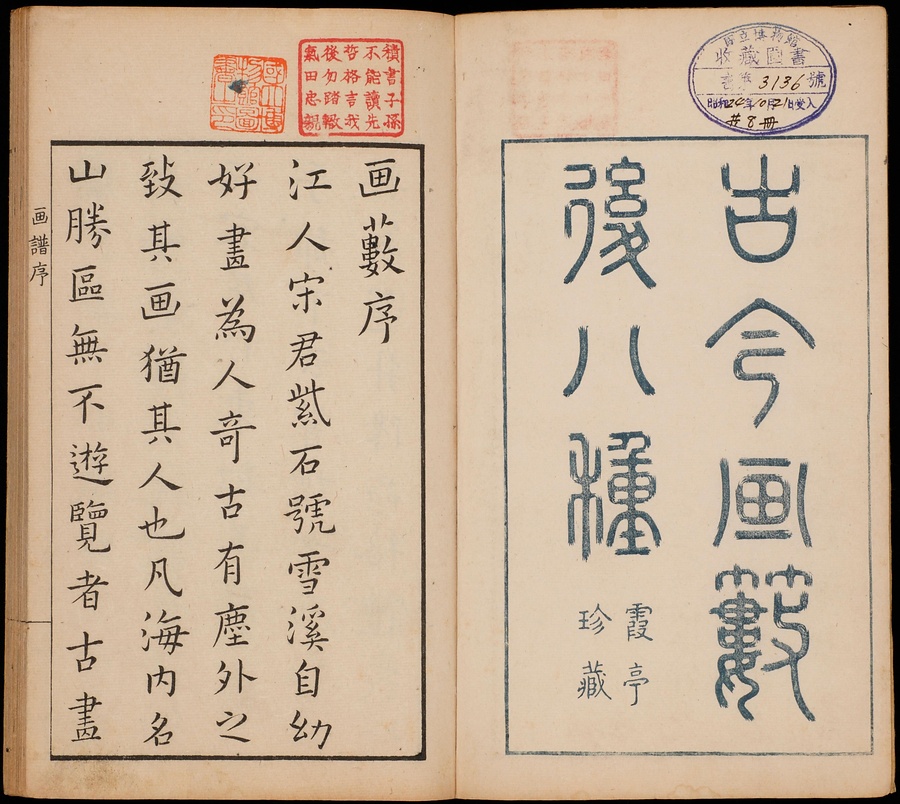 国立博物館
收藏圖書
3136號
昭和24年10月21日受入
共8冊
古今画藪
後八種
霞亭
珍藏
積書子孫
不能讀先
哲格言我
後勿踏轍
氣田忠親
國立博
物館圖
書之印
画藪序
江人宋君紫石號雪溪自幼
好畫為人奇古有塵外之
致其画猶其人也凡海内名
山勝區無不遊覽者古畫
画譜序